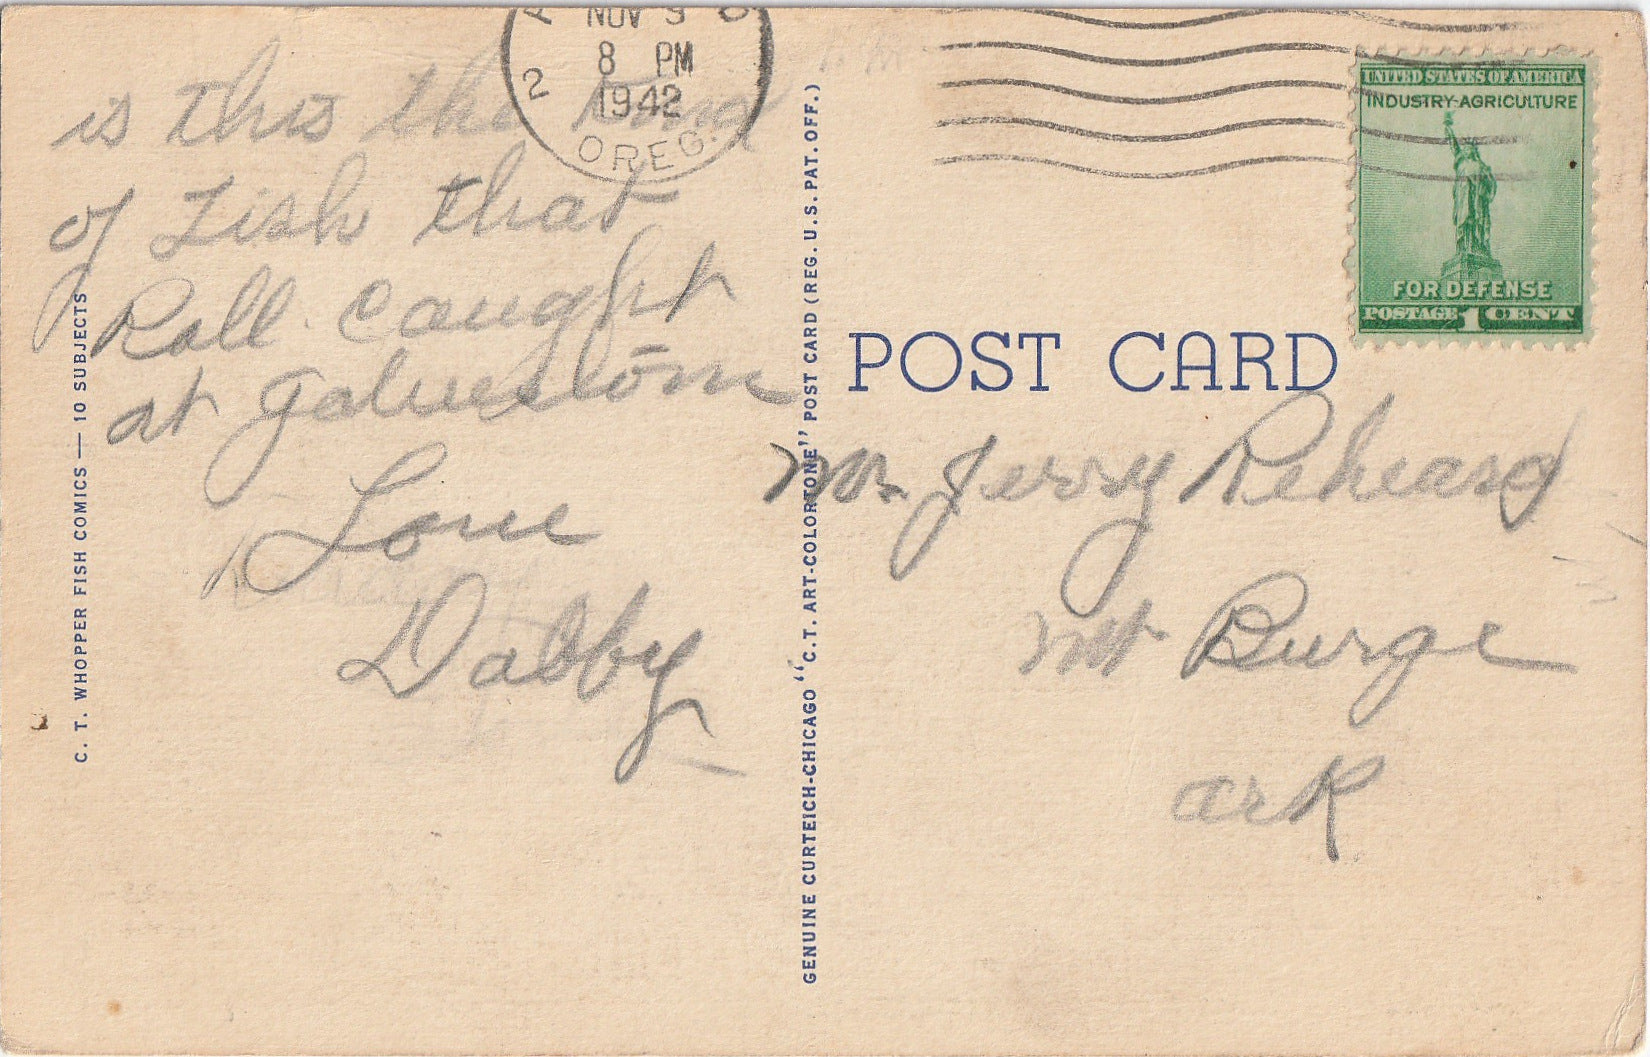 NOV 9
8 PM
2
1942
OREG.
is this the kind
of Fish that
Roll caught
at galvestōn
Love
Dabby
C. T. WHOPPER FISH COMICS — 10 SUBJECTS
GENUINE CURTEICH-CHICAGO "C.T. ART-COLORTONE" POST CARD (REG. U.S. PAT. OFF.)
UNITED STATES OF AMERICA
INDUSTRY-AGRICULTURE
FOR DEFENSE
POSTAGE 1 CENT
POST CARD
Mr. Jerry Reheard
Mt Burge
Ark